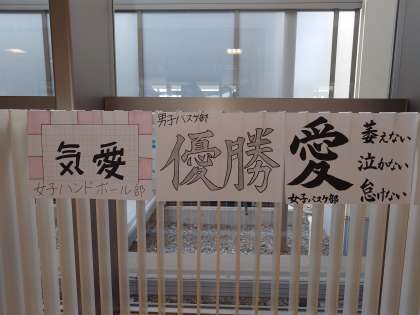 気愛
女子ハンドボール部
男子バスケ部
優勝
愛
女子バスケ部
萎えない
泣かない
怠けない